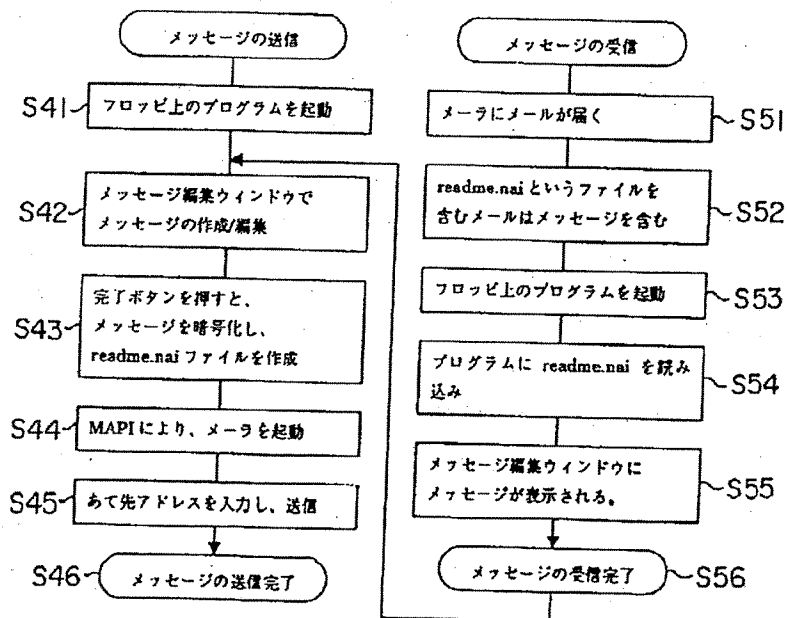 メッセージの送信
S41
フロッピ上のプログラムを起動
S42
メッセージ編集ウィンドウで
メッセージの作成/編集
S43
完了ボタンを押すと、
メッセージを暗号化し、
readme.naiファイルを作成
S44
MAPIにより、メーラを起動
S45
あて先アドレスを入力し、送信
S46
メッセージの送信完了
メッセージの受信
メーラにメールが届く
S51
readme.naiというファイルを
含むメールはメッセージを含む
S52
フロッピ上のプログラムを起動
S53
プログラムに readme.nai を読み
込み
S54
メッセージ編集ウィンドウに
メッセージが表示される。
S55
メッセージの受信完了
S56